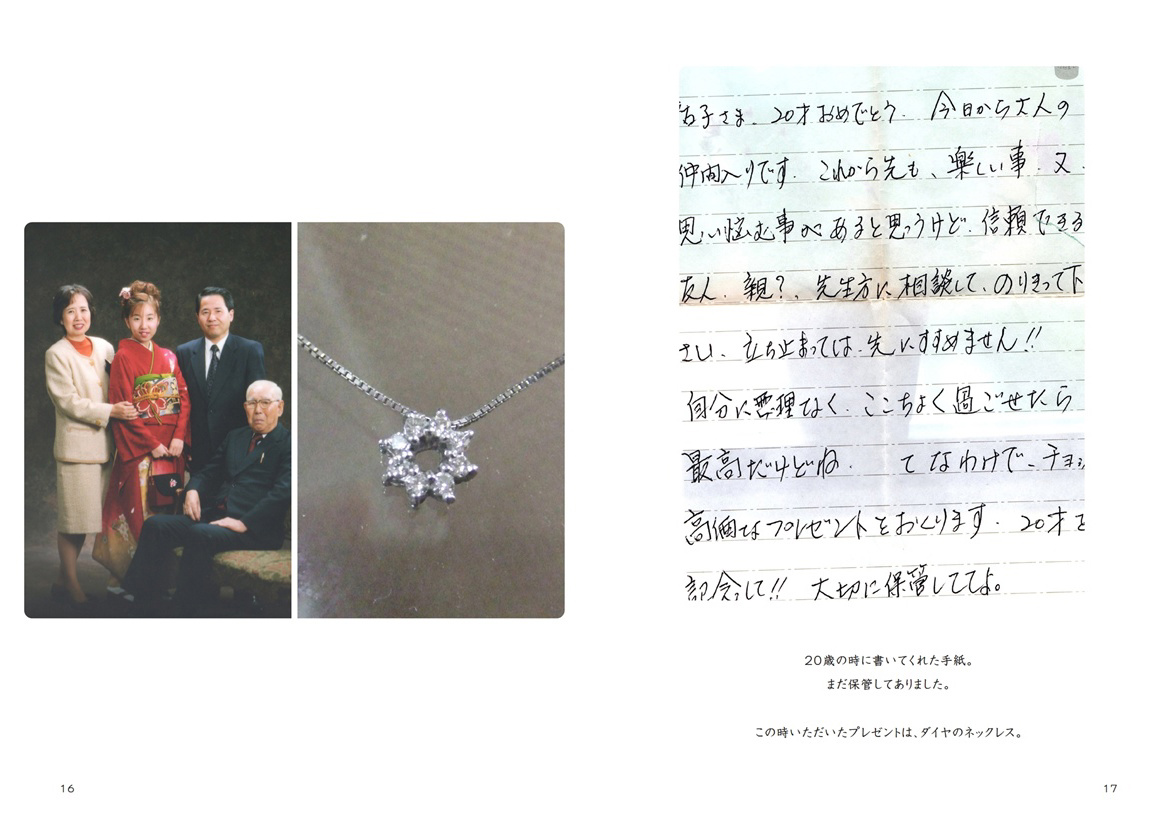 子さま、20才おめでとう. 今日から大人の
仲間入りです. これから先も、楽しい事. 又.
思い悩む事があると思うけど. 信頼できる
友人. 親?、先生方に相談して、のりきって下
さい. 立ち止まっては、先にすすめません!!
自分に無理なく. ここちよく過ごせたら
最高だけどね. てなわけで、チョッ
高価なプレゼントをおくります. 20才を
記念して!! 大切に保管しててよ。
20歳の時に書いてくれた手紙。
まだ保管してありました。
この時いただいたプレゼントは、ダイヤのネックレス。
16
17